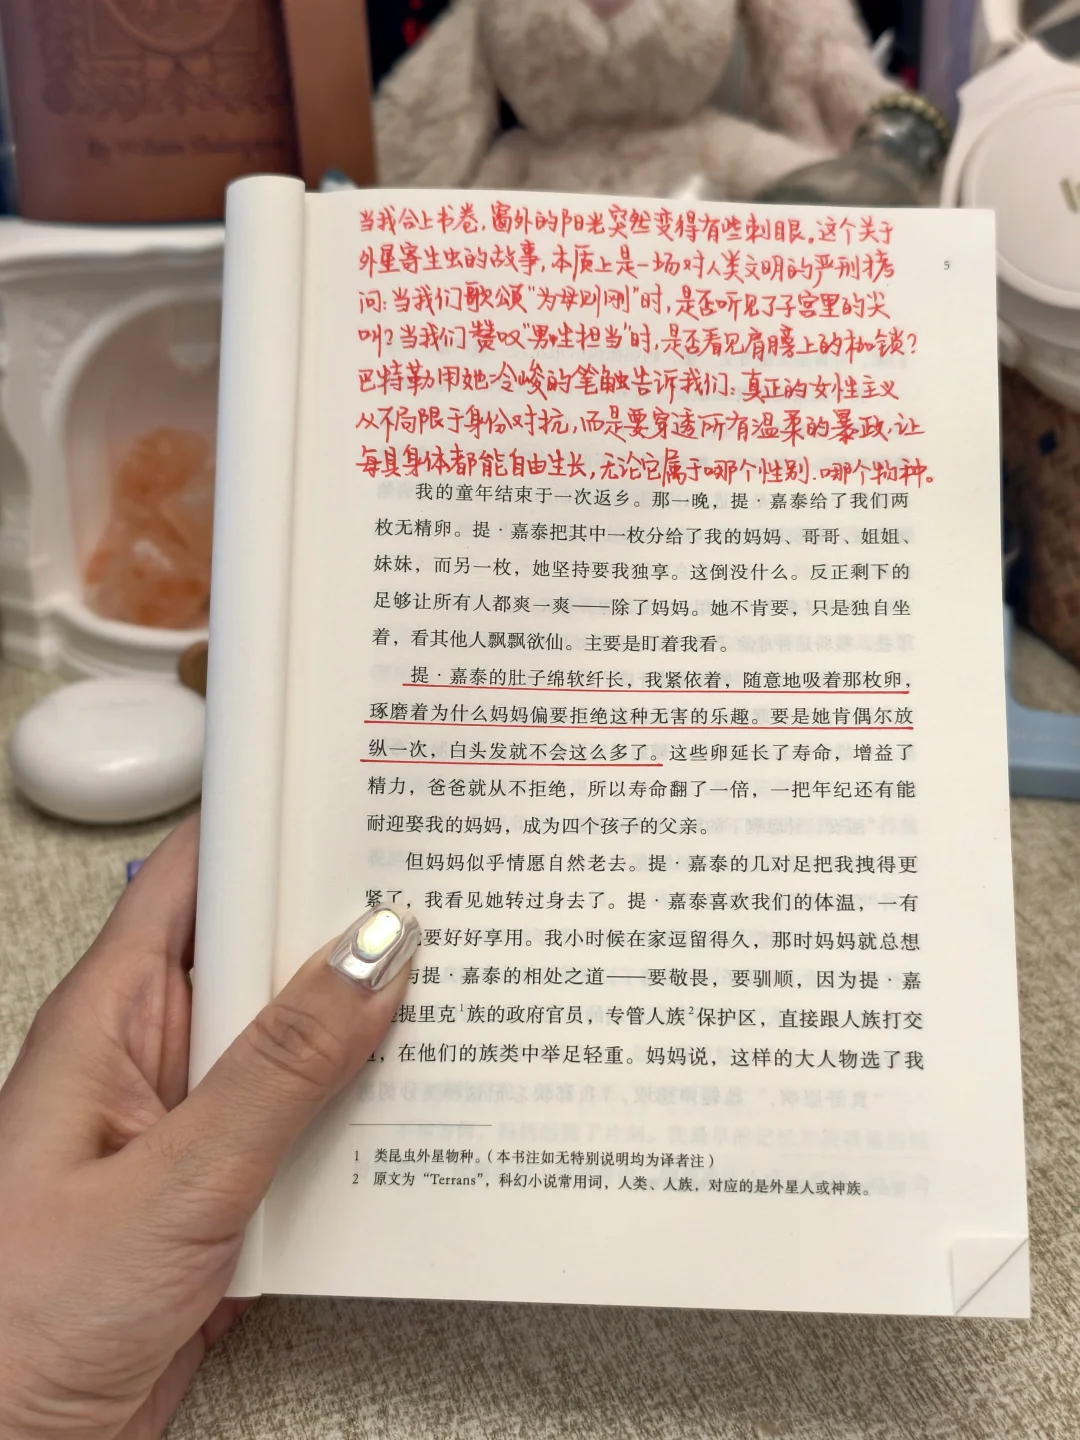 By William Shakespeare
5
当我合上书卷,窗外的阳光突然变得有些刺眼。这个关于
外星寄生虫的故事,本质上是一场对人类文明的严刑拷
问:当我们歌颂"为母则刚"时,是否听见了子宫里的尖
叫?当我们赞叹"男性担当"时,是否看见肩膀上的枷锁?
巴特勒用她冷峻的笔触告诉我们:真正的女性主义
从不局限于身份对抗,而是要穿透所有温柔的暴政,让
每具身体都能自由生长,无论它属于哪个性别.哪个物种。
我的童年结束于一次返乡。那一晚,提·嘉泰给了我们两
枚无精卵。提·嘉泰把其中一枚分给了我的妈妈、哥哥、姐姐、
妹妹,而另一枚,她坚持要我独享。这倒没什么。反正剩下的
足够让所有人都爽一爽——除了妈妈。她不肯要,只是独自坐
着,看其他人飘飘欲仙。主要是盯着我看。
提·嘉泰的肚子绵软纤长,我紧依着,随意地吸着那枚卵,
琢磨着为什么妈妈偏要拒绝这种无害的乐趣。要是她肯偶尔放
纵一次,白头发就不会这么多了。这些卵延长了寿命,增益了
精力,爸爸就从不拒绝,所以寿命翻了一倍,一把年纪还有能
耐迎娶我的妈妈,成为四个孩子的父亲。
但妈妈似乎情愿自然老去。提·嘉泰的几对足把我拽得更
紧了,我看见她转过身去了。提·嘉泰喜欢我们的体温,一有
要好好享用。我小时候在家逗留得久,那时妈妈就总想
与提·嘉泰的相处之道——要敬畏,要驯顺,因为提·嘉
提里克¹族的政府官员,专管人族²保护区,直接跟人族打交
,在他们的族类中举足轻重。妈妈说,这样的大人物选了我
1 类昆虫外星物种。(本书注如无特别说明均为译者注)
2 原文为“Terrans”,科幻小说常用词,人类、人族,对应的是外星人或神族。